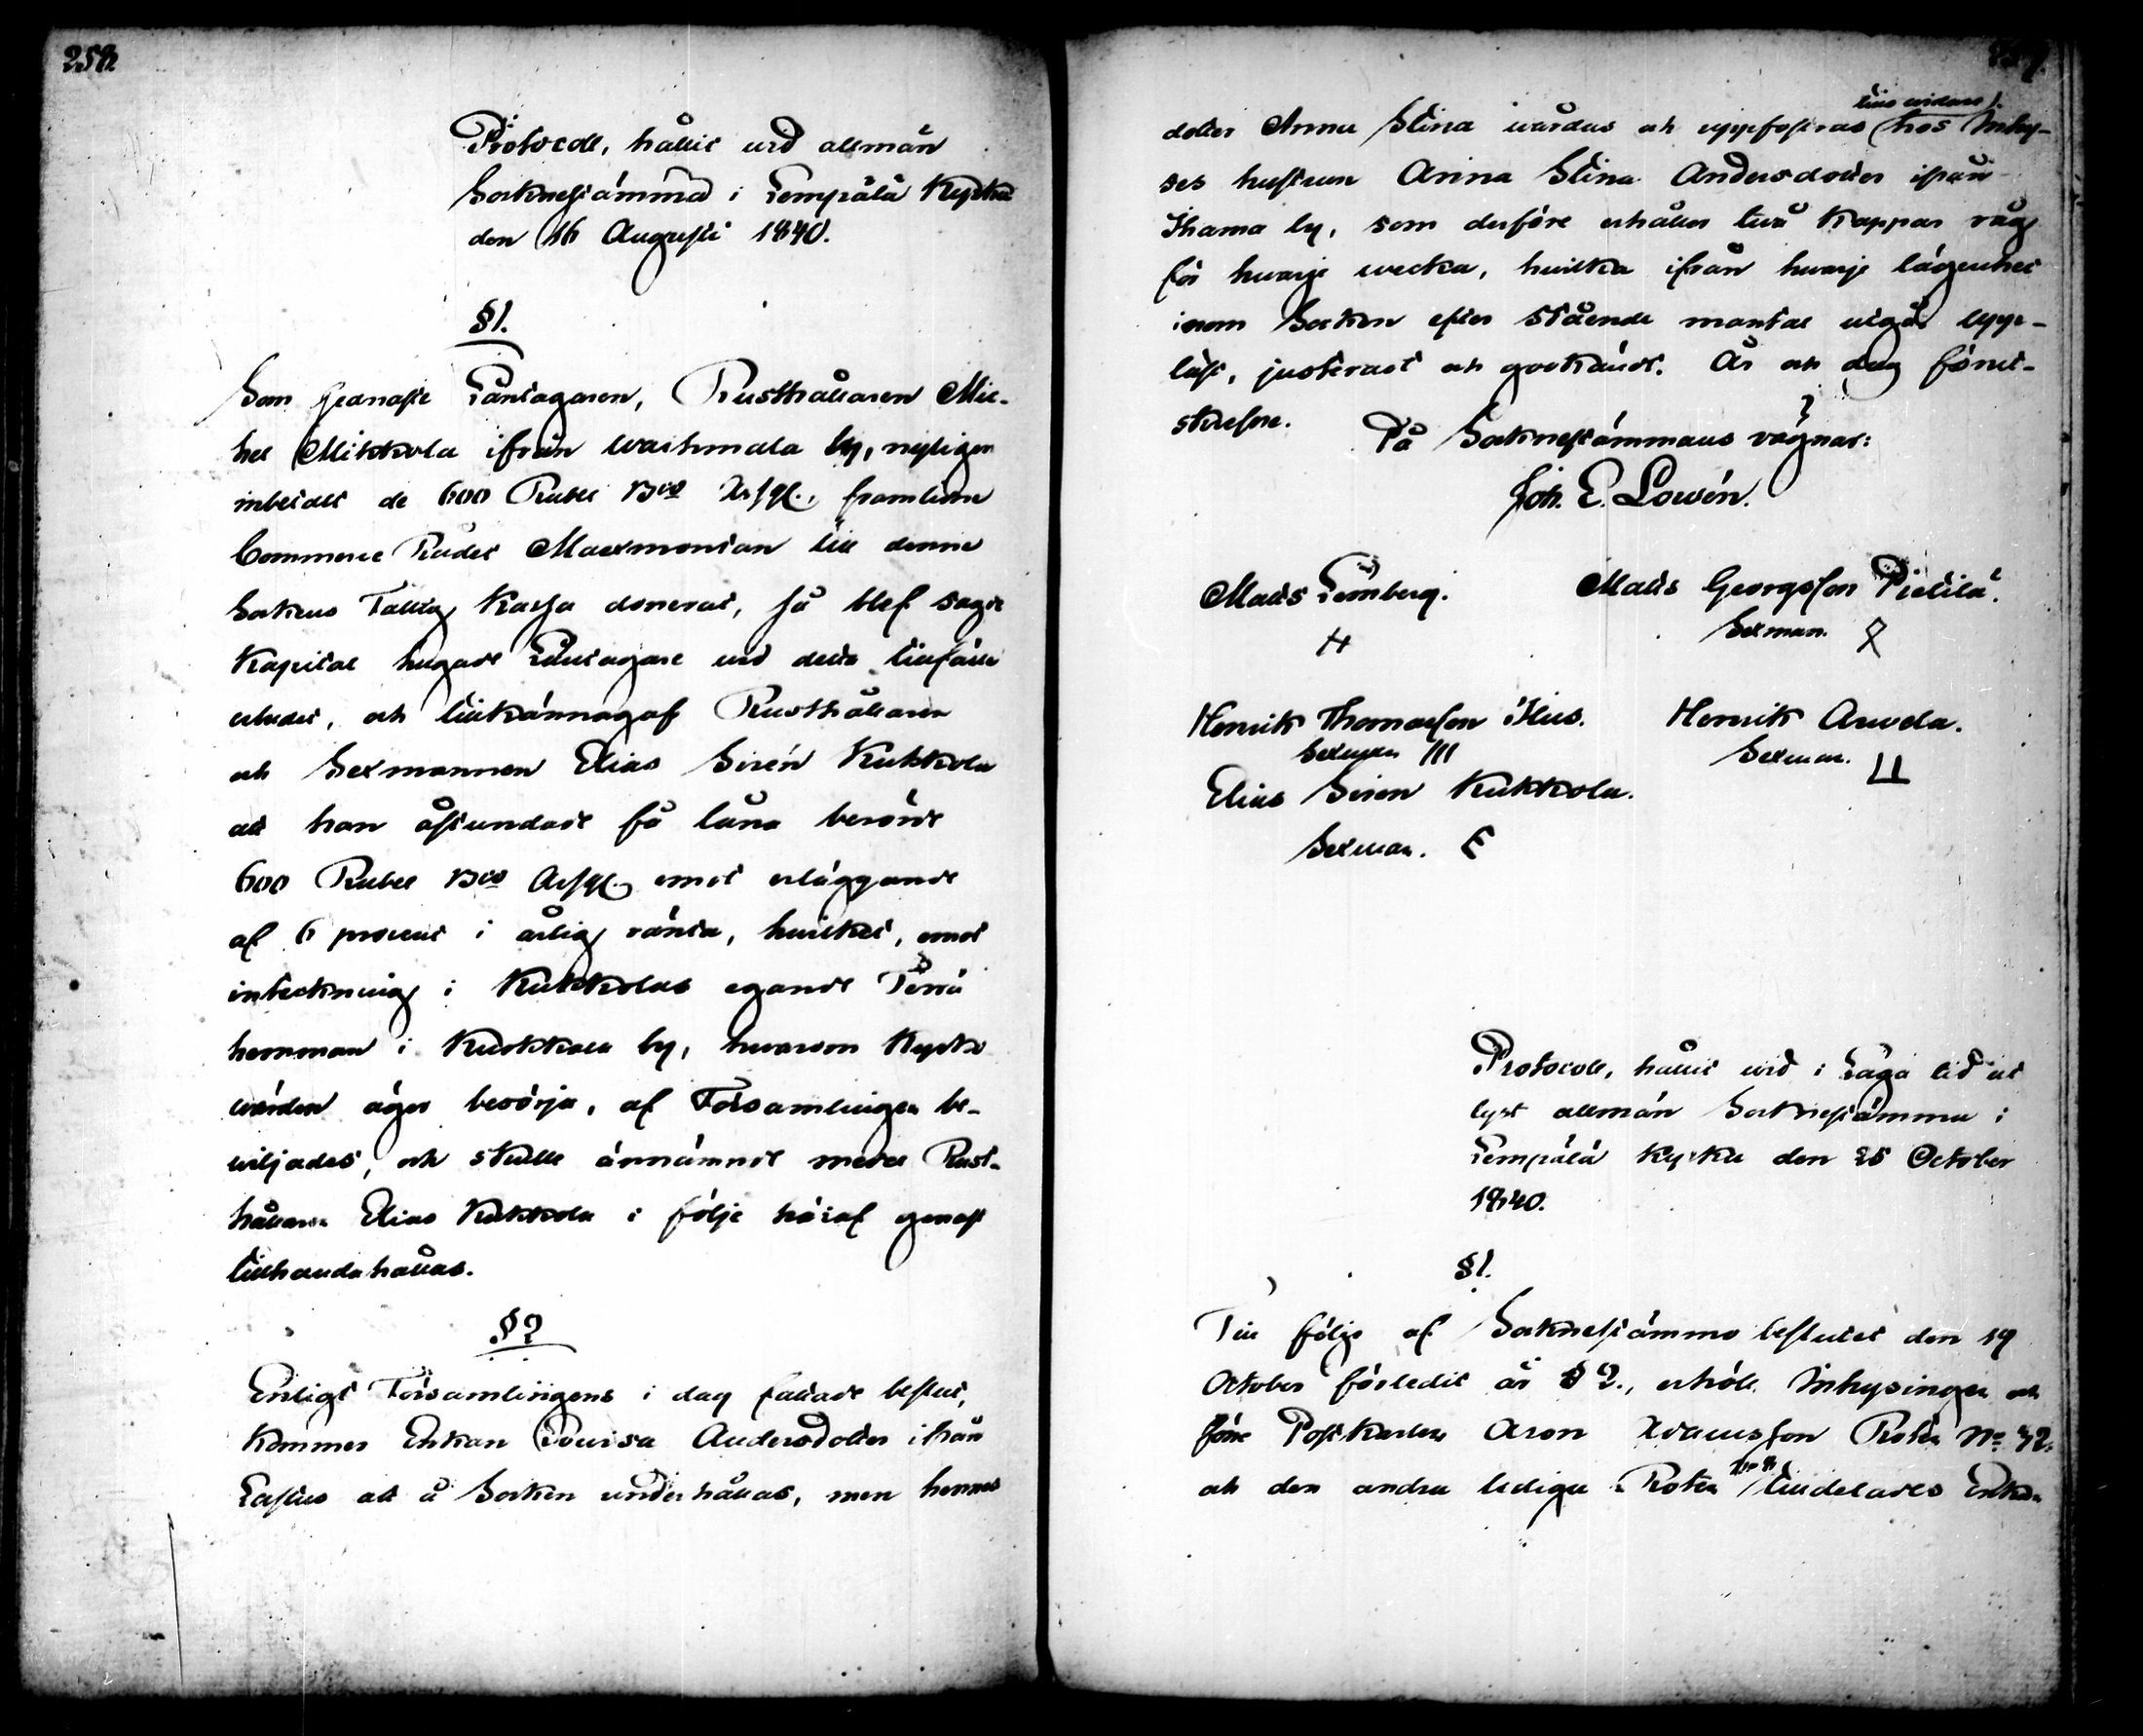 258
Protocoll, hållit vid allmän
Socknestämma i Lempälä Kyrka
den 16 Augusti 1840.
§1.
Som senaste Låntagaren, Rusthållaren Mic-
hel Mikkola ifrån Waihmala by, nyligen
inbetalt de 600 Rubel B:co Assgl., framledne
Commerce Rådet Maexmontan till denne
Sockens Fattig Kassa donerat, så blef sagde
Kapital hugade Låntagare vid detta tillfälle
erbudet, och tillkännagaf Rusthållaren
och Sexmannen Elias Sirén Kukkola
att han åstundade få låna berörde
600 Rubel B:co Assgl. emot erläggande
af 6 procent i årlig ränta, hvilket, emot
inteckning i Kukkolas egande Perrä
hemman i Kurkkala by, hvarom Kyrko
wärden äger besörja, af Församlingen be-
wiljades, och skulle ännämnde medel Rust-
hållaren Elias Kukkola i följe häraf genast
tillhandahållas.
§2
Enligt Församlingens i dag fattade beslut,
kommer Enkan Lovisa Andersdotter ifrån
Lastus att å Socken underhållas, men hennes
dotter Anna Stina wårdas och uppfostras hos Inhy-
tills vidare
ses hustrun Anna Stina Andersdotter ifrån
Ihama by, som derföre erhåller två Kappar råg
för hwarje wecka, hwilka ifrån hwarje lägenhet
inom Socken efter stående mantal utgår. Upp-
läst, justeradt och godkändt. År och dag föret-
skrefne.
På Sockneståmmans vägnar:
Joh. E. Lowén.
Matts Lemberg.
Matts Georgsson Pietilä.
Sexman.
Henrik Thomasson Hius.
Henrik Anvela.
Sexman III
Sexman.
Elias Siren Kukkola.
Sexman. E
Protocoll, hållit vid i Laga tid ut
lyst allmän Sockneståmma i
Lempälä Kyrka den 25 October
1840.
§1.
Till följe af Sockneståmmo beslutet den 19
October förledit år § 2., erhöll Inhysingen och
förre Postkarlen Aron Adamsson Roten N:o 42.
och den andra lediga Roten N:o 8 tilldelades Enkan